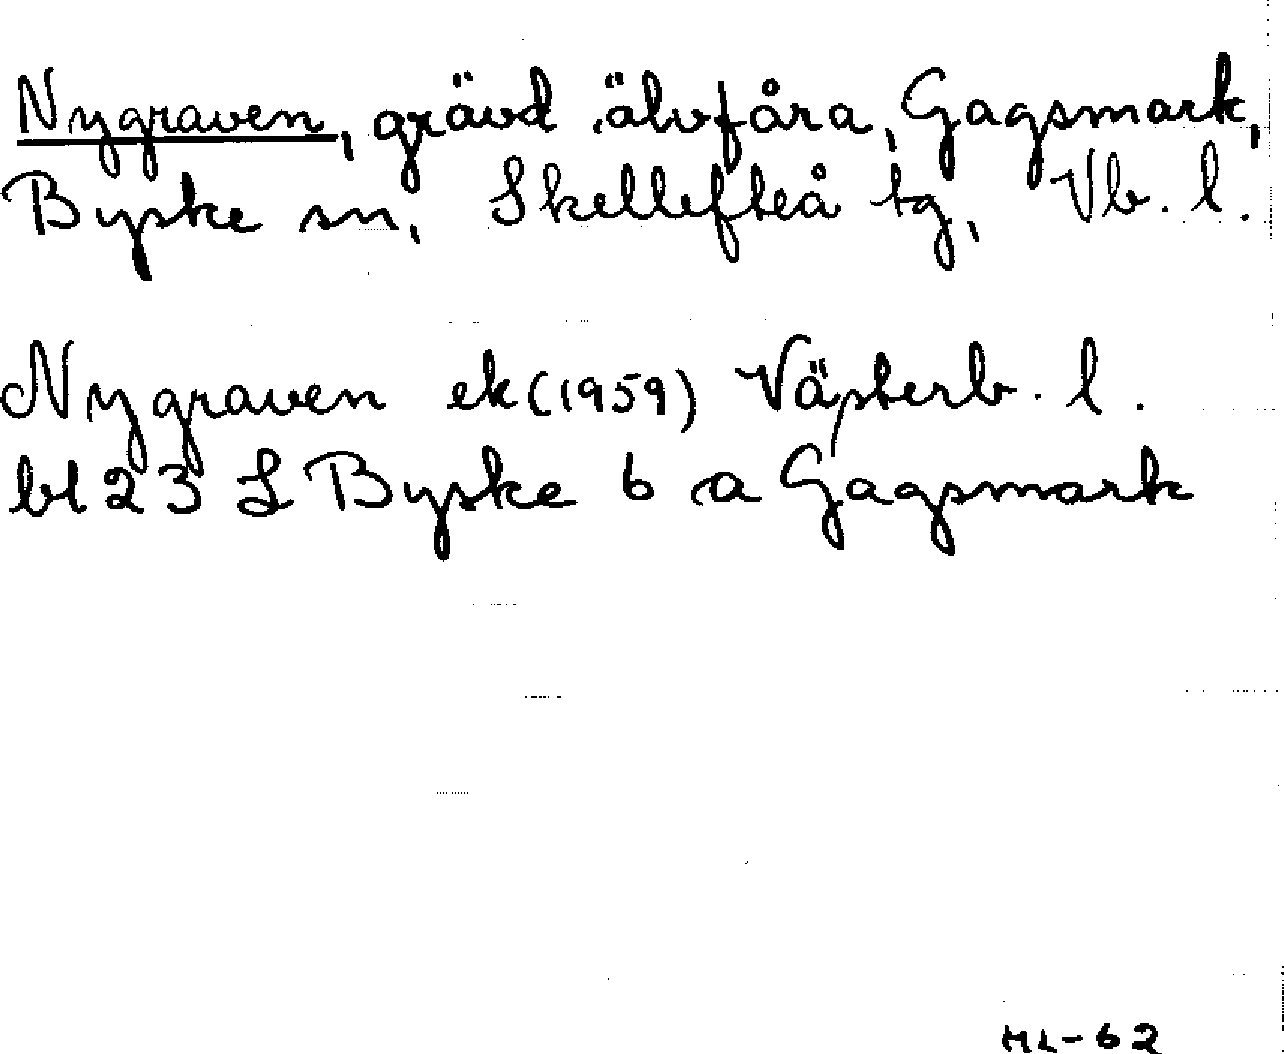 Nygraven, grävd älvfåra, Gagsmark,
Byske sn, Skellefteå tg, Vb. l.
Nygraven ek (1959) Västerb. l.
bl 23 L Byske 6 a Gagsmark
ML-62